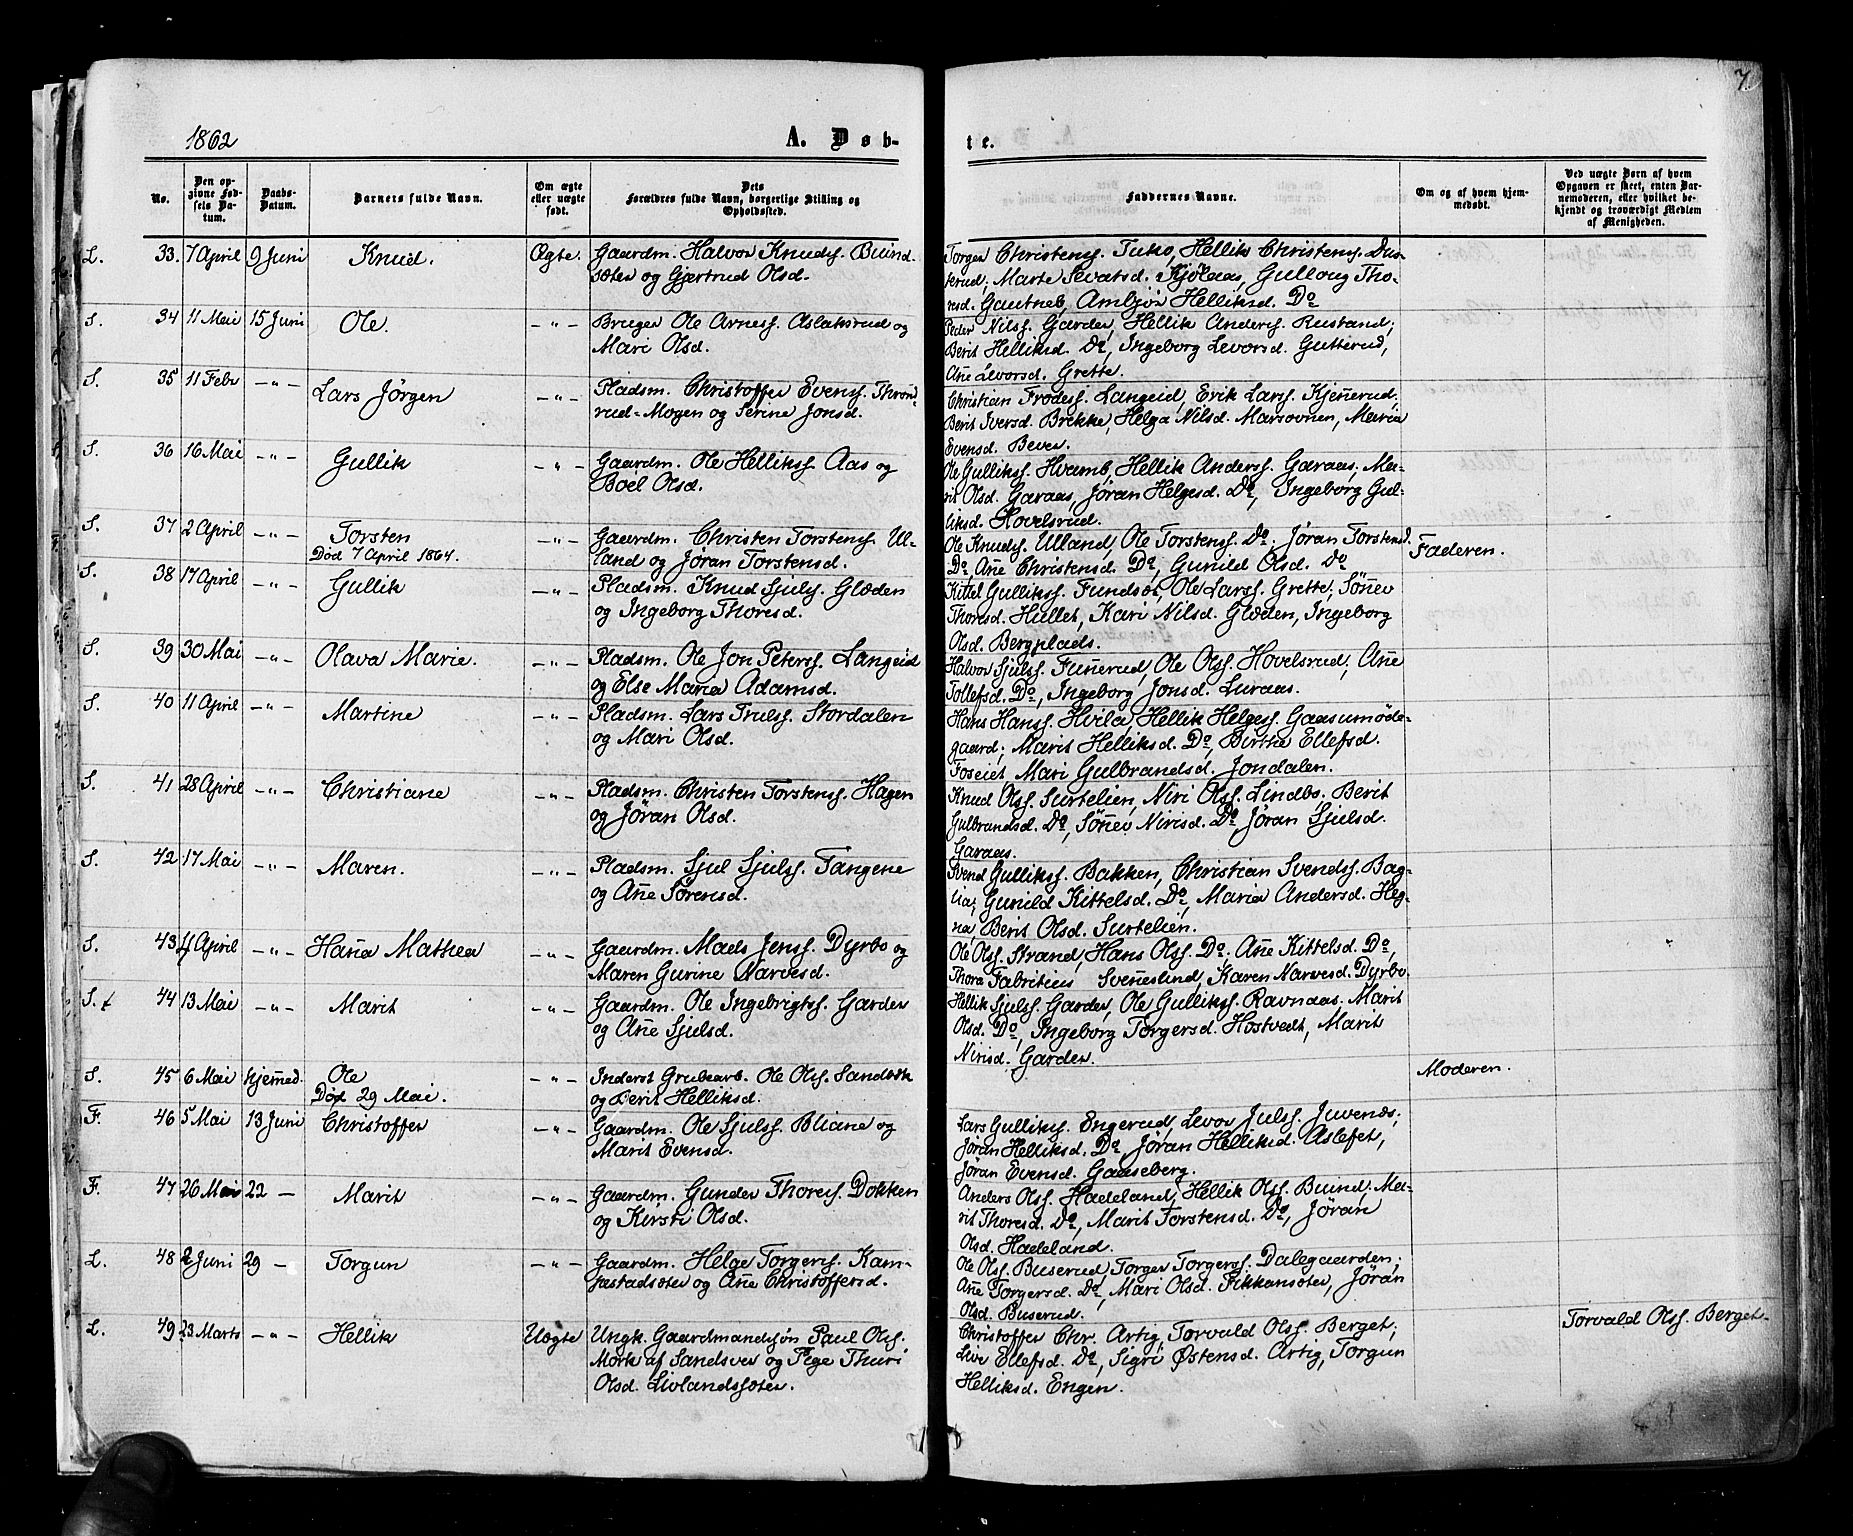 7
1862 A. Døb- te.
No. Den opgivne Fødsels Datum. Daabs-Datum. Barnets fulde Navn. Om ægte eller uægte født. Dets Forældres fulde Navn, borgerlige Stilling og Opholdssted. Faddernes Navne. Om og af hvem hjemmedøbt. Ved uægte Børn af hvem Opgaven er skeet, enten Barnemoderen, eller hvilket bekjendt og troværdigt Medlem af Menigheden.
L. 33. 7 April 9 Juni Knud. Ægte. Gaardm. Halvor Knuds. Buind-
sæter og Gjertrud Olsd.
Torger Christens. Tuko, Hellik Christens. Dus-
terud; Marte Sevatsd. Kjølaas, Gullong Tho-
resd. Gautneb, Ambjør Helliksd. Do
S. 34 11 Mai 15 Juni Ole. -"- Bruger Ole Arness. Aslaksrud og
Mari Olsd.
Peder Nilss. Garder, Hellik Anderss. Rustand;
Berit Helliksd. Do, Ingeborg Levorsd. Gutterud,
Añe Alvorsd. Grette.
S. 35 11 Febr -"- Lars Jørgen -"- Pladsm. Christoffer Evenss. Thrond-
rud-Mogen og Serine Jonsd.
Christian Frodess. Langeid, Erik Larss. Kjeñerud;
Berit Iversd. Brekke, Helga Nilsd. Marsovnen, Maria
Evensd. Bever.
S. 36 16 Mai Gullik -"- Gaardm. Ole Helliks. Aas og
Boel Olsd.
Ole Gulliks. Hvamb, Hellik Anderss. Garaas; Ma-
rit Olsd. Garaas, Jøran Helgesd. Do, Ingeborg Gul-
liksd. Hovelsrud.
S. 37 2 April -"- Torsten -"- Gaardm. Christen Torstens. Ul-
Død 7 April 1864. land og Jøran Torstensd.
Ole Knuds. Ulland, Ole Torstens. Do. Jøran Torstensd.
Do, Añe Christensd. Do, Gunild Olsd. Do
Faderen.
S. 38 17 April -"- Gullik -"- Pladsm. Knud Sjuls. Glæden
og Ingeborg Thoresd.
Kittel Gulliks. Fundsæt, Ole Larss. Grette, Søñev
Thoresd. Hullet, Kari Nilsd. Glæden, Ingeborg
Olsd. Bergplads.
S. 39 30 Mai -"- Olava Marie. -"- Pladsm. Ole Jon Peterss. Langeid
og Else Maria Adamsd.
Halvor Sjulss. Fuñerud, Ole Olss. Hovelsrud; Añe
Tollefsd. Do, Ingeborg Jonsd. Luraas.
S. 40 11 April -"- Martine -"- Pladsm. Lars Trulss. Stordalen
og Mari Olsd.
Hans Hanss. Hvila, Hellik Helgess. Gaasumøde-
gaard; Marit Helliksd. Do, Birthe Ellefsd.
Foseiet Mari Gulbrandsd. Jondalen.
S. 41 28 April -"- Christiane -"- Pladsm. Christen Torstens. Hagen
og Jøran Olsd.
Knud Olss. Surtelien, Niri Olss. Lindbo. Berit
Gulbrandsd. Do, Søñev Nirisd. Do Jøran Sjulsd.
Garaas.
S. 42 17 Mai -"- Maren. -"- Pladsm. Sjul Sjulss. Tangene
og Añe Sørensd.
Svend Gullikss. Bakken, Christian Svends. Bag-
lia; Gunild Kittelsd. Do, Maria Andersd. Heg-
na, Berit Olsd. Surtelien.
S. 43 4 April -"- Haña Mathea -"- Gaardm. Mads Jenss. Dyrbo og
Maren Gurine Narvesd.
Ole Olss. Strand, Hans Olss. Do; Añe Kittelsd. Do,
Thora Fabritius Sveñeslund, Karen Narvesd. Dyrbo.
S. 44 13 Mai -"- Marit -"- Gaardm. Ole Ingebrigts. Garder
og Añe Sjulsd.
Hellik Sjulss. Garder, Ole Gulliks. Ravnaas. Marit
Olsd. Do, Ingeborg Torgersd. Hostvedt, Marit
Nirisd. Garder.
S. 45 6 Mai hjemed. Ole -"- Inderst Grubearb. Ole Olss. Sandbæk
Død 29 Mai. og Berit Helliksd.
Moderen.
F. 46 5 Mai 13 Juni Christoffer -"- Gaardm. Ole Sjuls. Bliane og
Marit Evensd.
Lars Gulliks. Engerud, Levor Julss. Juvenæs;
Jøran Helliksd. Do, Jøran Helliksd. Aslefet,
Jøran Evensd. Gaaseberg.
F. 47 26 Mai 22 - Marit -"- Gaardm. Gunder Thoress. Dokken
og Kirsti Olsd.
Anders Olss. Hadeland, Hellik Olss. Buind; Ma-
rit Thoresd. Do, Marit Torstensd. Do, Jøran
Olsd. Hadeland.
L. 48 2 Juni 29 - Torgun -"- Gaardm. Helge Torgers. Kam-
pestadsæter og Añe Christoffersd.
Ole Olss. Buserud, Torger Torgerss. Dalegaarden;
Añe Torgersd. Do, Mari Olsd. Fikkansæter, Jøran
Olsd. Buserud.
L. 49 23 Marts -"- Hellik Uægte Ungk. Gaardmandssøn Paul Olss.
Mørk af Sandsver og Pige Thuri
Olsd. Livlandssæter.
Christoffer Chr. Artig, Torvald Olss. Berget;
Live Ellefsd. Do, Sigri Østensd. Artig, Torgun
Helliksd. Engen.
Torvald Olss. Berget.